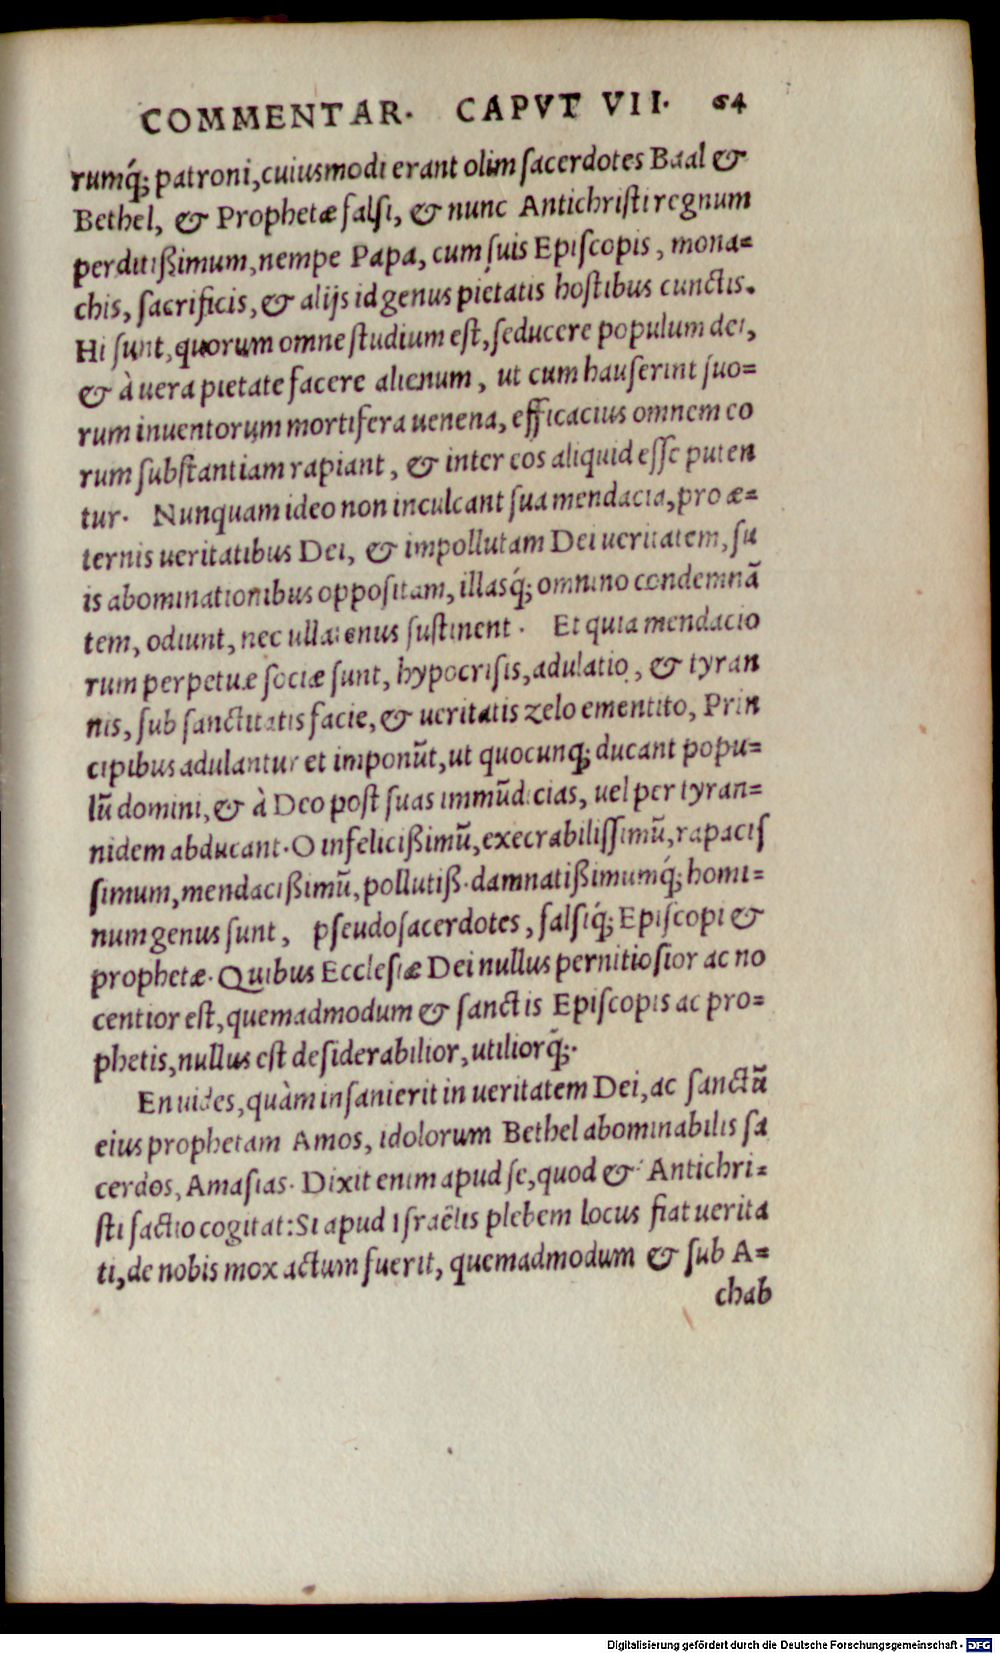 COMMENTAR. CAPVT VII. 64
rumq́; patroni, cuiusmodi erant olim ſacerdotes Baal &
Bethel, & Prophetæ falſi, & nunc Antichriſti regnum
perditißimum, nempe Papa, cum ſuis Epiſcopis, mona=
chis, ſacrificis, & alijs id genus pietatis hoſtibus cunctis.
Hi ſunt, quorum omne ſtudium eſt, ſeducere populum dei,
& à uera pietate facere alienum, ut cum hauſerint ſuo=
rum inuentorum mortifera uenena, efficacius omnem eo
rum ſubſtantiam rapiant, & inter eos aliquid eſſe puten
tur. Nunquam ideo non inculcant ſua mendacia, pro æ=
ternis ueritatibus Dei, & impollutam Dei ueritatem, ſu
is abominationibus oppoſitam, illasq́; omnino condemnã
tem, odiunt, nec ullatenus ſuſtinent. Et quia mendacio
rum perpetuæ ſociæ ſunt, hypocriſis, adulatio, & tyran
nis, ſub ſanctitatis facie, & ueritatis zelo ementito, Prin
cipibus adulantur et imponũt, ut quocunq; ducant popu=
lũ domini, & à Deo poſt ſuas immũdicias, uel per tyran=
nidem abducant. O infelicißimũ, execrabiliſſimũ, rapaciſ
ſimum, mendacißimũ, pollutiß. damnatißimumq́; homi=
num genus ſunt, pſeudoſacerdotes, falſiq́; Epiſcopi &
prophetæ. Quibus Eccleſiæ Dei nullus pernitioſior ac no
centior eſt, quemadmodum & ſanctis Epiſcopis ac pro=
phetis, nullus eſt deſiderabilior, utiliorq̃;.
En uides, quàm inſanierit in ueritatem Dei, ac ſanctũ
eius prophetam Amos, idolorum Bethel abominabilis ſa
cerdos, Amaſias. Dixit enim apud ſe, quod & Antichri=
ſti factio cogitat: Si apud Iſraëlis plebem locus fiat uerita
ti, de nobis mox actum fuerit, quemadmodum & ſub A=
chab
Digitalisierung gefördert durch die Deutsche Forschungsgemeinschaft - DFG